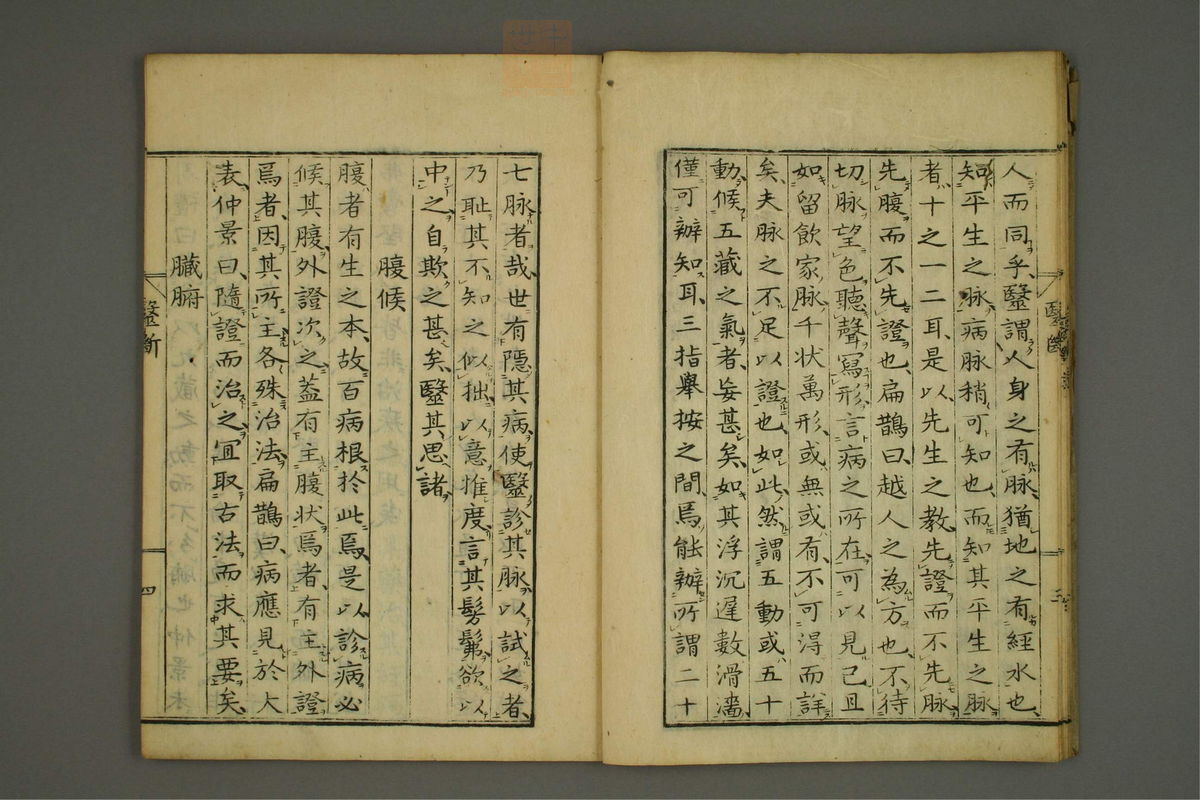 人而同乎、毉謂人身之有脉猶地之有經水也、
知平生之脉、病脉稍可知也、而知其平生之脉
者、十之一二耳、是以先生之教、先證而不先脉、
先腹而不先證也、扁鵲曰、越人之為方也、不待
切脉望色聽聲寫形、言病之所在、可以見已、且
如留飲家脉、千狀萬形、或無或有、不可得而詳
矣、夫脉之不足以證也、如此、然謂五動或五十
動、候五藏之氣者、妄甚矣、如其浮沉遲數滑濇、
僅可辦知耳、三指舉按之間、焉能辦所謂二十
七脉者哉、世有隱其病、使毉診其脉、以試之者、
乃耻其不知之似拙、以意推度、言其髣髴、欲以
中之、自欺之甚矣、毉其思諸、
腹候
腹者有生之本、故百病根於此焉、是以診病必
候其腹、外證次之、蓋有主腹狀焉者、有主外證
焉者、因其所主、各殊治法、扁鵲曰、病應見於大
表、仲景曰、隨證而治之、宜取古法而求其要矣、
臟腑
毉斷
四
毉斷
三